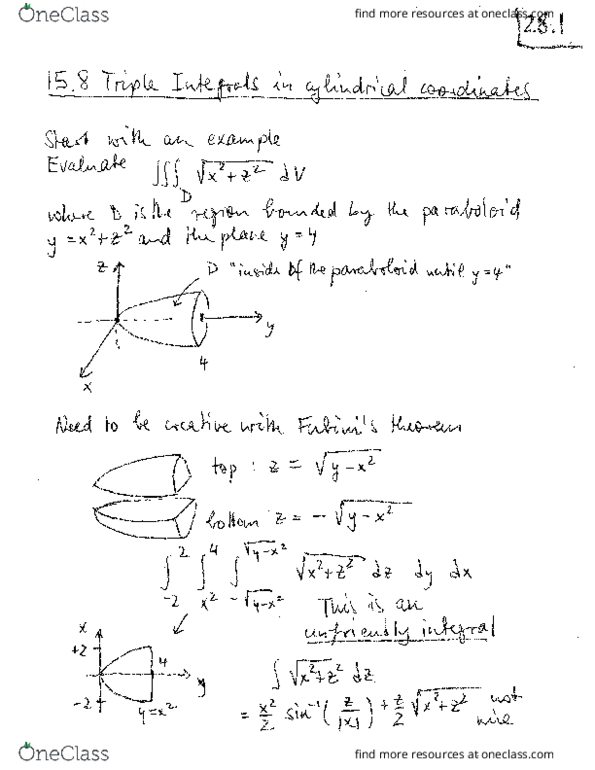 OneClass
find more resources at oneclass.com
28.1
15.8 Triple Integrals in cylindrical coordinates
Start with an example
Evaluate ∭_D √(x²+z²) dV
where D is the region bounded by the paraboloid
y = x²+z² and the plane y = 4
z
D "inside of the paraboloid until y=4"
y
4
x
Need to be creative with Fubini's theorem
top : z = √(y-x²)
bottom z = -√(y-x²)
∫_{-2}^{2} ∫_{x²}^{4} ∫_{-√(y-x²)}^{√(y-x²)} √(x²+z²) dz dy dx
This is an
unfriendly integral
x
+2
4
y
-2
y=x²
∫ √(x²+z²) dz
= x²/2 sin⁻¹(z/|x|) + z/2 √(x²+z²) not
nice
OneClass
find more resources at oneclass.com